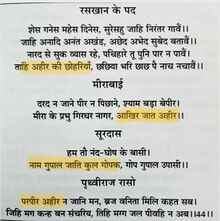 रसखान के पद
शेस गनेस महेस दिनेस, सुरेसहु जाहि निरंतर गावैं।।
जाहि अनादि अनंत अखंड, अछेद अभेद सुबेद बतावैं।।
नारद से सुक व्यास रहे, पचिहारे तू पुनि पार न पावैं।
ताहि अहीर की छोहरियाँ, छछिया भरि छाछ पै नाच नचावैं।।
मीराबाई
दरद न जाने पीर न पिछाने, श्याम बड़ा बेपीर।
मीरा के प्रभु गिरधर नागर, आखिर जात अहीर।।
सूरदास
हम तौ नंद-घोष के बासी।
नाम गुपाल जाति कुल गोपक, गोप गुपाल उपासी।।
पृथ्वीराज रासो
परपीर अहीर न जानि मन, ब्रज वनिता मिलि कहत सब।
जिहि मग कन्ह बन संचरिय, तिहि मग जल पीवहि न अब।।४।।